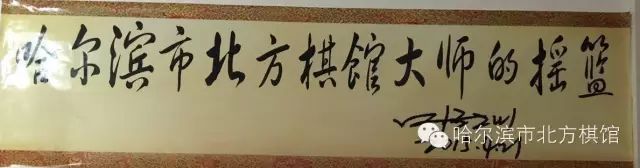 哈尔滨市北方棋馆大师的摇篮
哈尔滨市北方棋馆